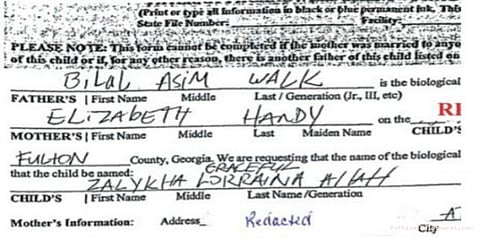 (Print or type all information in black or blue permanent ink. This
State File Number: Facility:
PLEASE NOTE: This form cannot be completed if the mother was married to anyo
of this child or if, for any other reason, there is another father of this child listed on
BILAL ASIM WALK is the biological
FATHER'S | First Name Middle Last / Generation (Jr., III, etc)
ELIZABETH HANDY on the RE
MOTHER'S | First Name Middle Last Maiden Name CHILD'S
FULTON County, Georgia. We are requesting that the name of the biological
GRACEFUL
that the child be named:
ZALYKHA LORRAINA ALLAH
CHILD'S | First Name Middle Last Name /Generation
Mother's Information: Address Redacted A
City